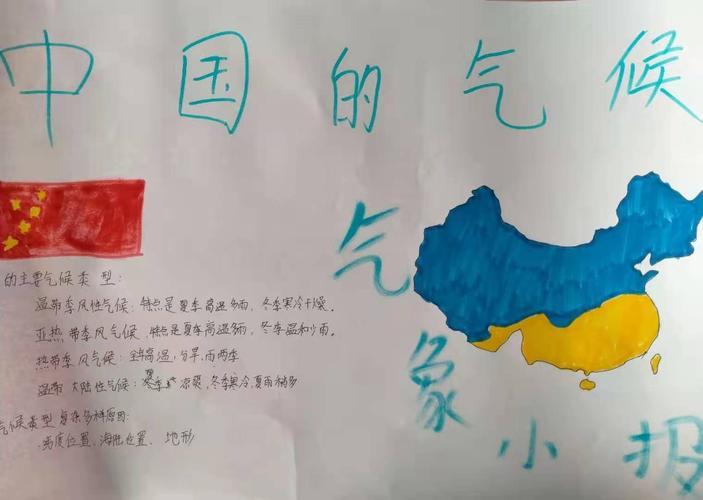 中国的气候
气象小报
的主要气候类型:
温带季风性气候:特点是夏季高温多雨,冬季寒冷干燥。
亚热带季风气候,特点是夏季高温多雨,冬季温和少雨。
热带季风气候:全年高温,分旱,雨两季
温带 大陆性气候:夏季 凉爽,冬季寒冷,夏雨稍多
气候类型复杂多样原因:
纬度位置,海陆位置、地形